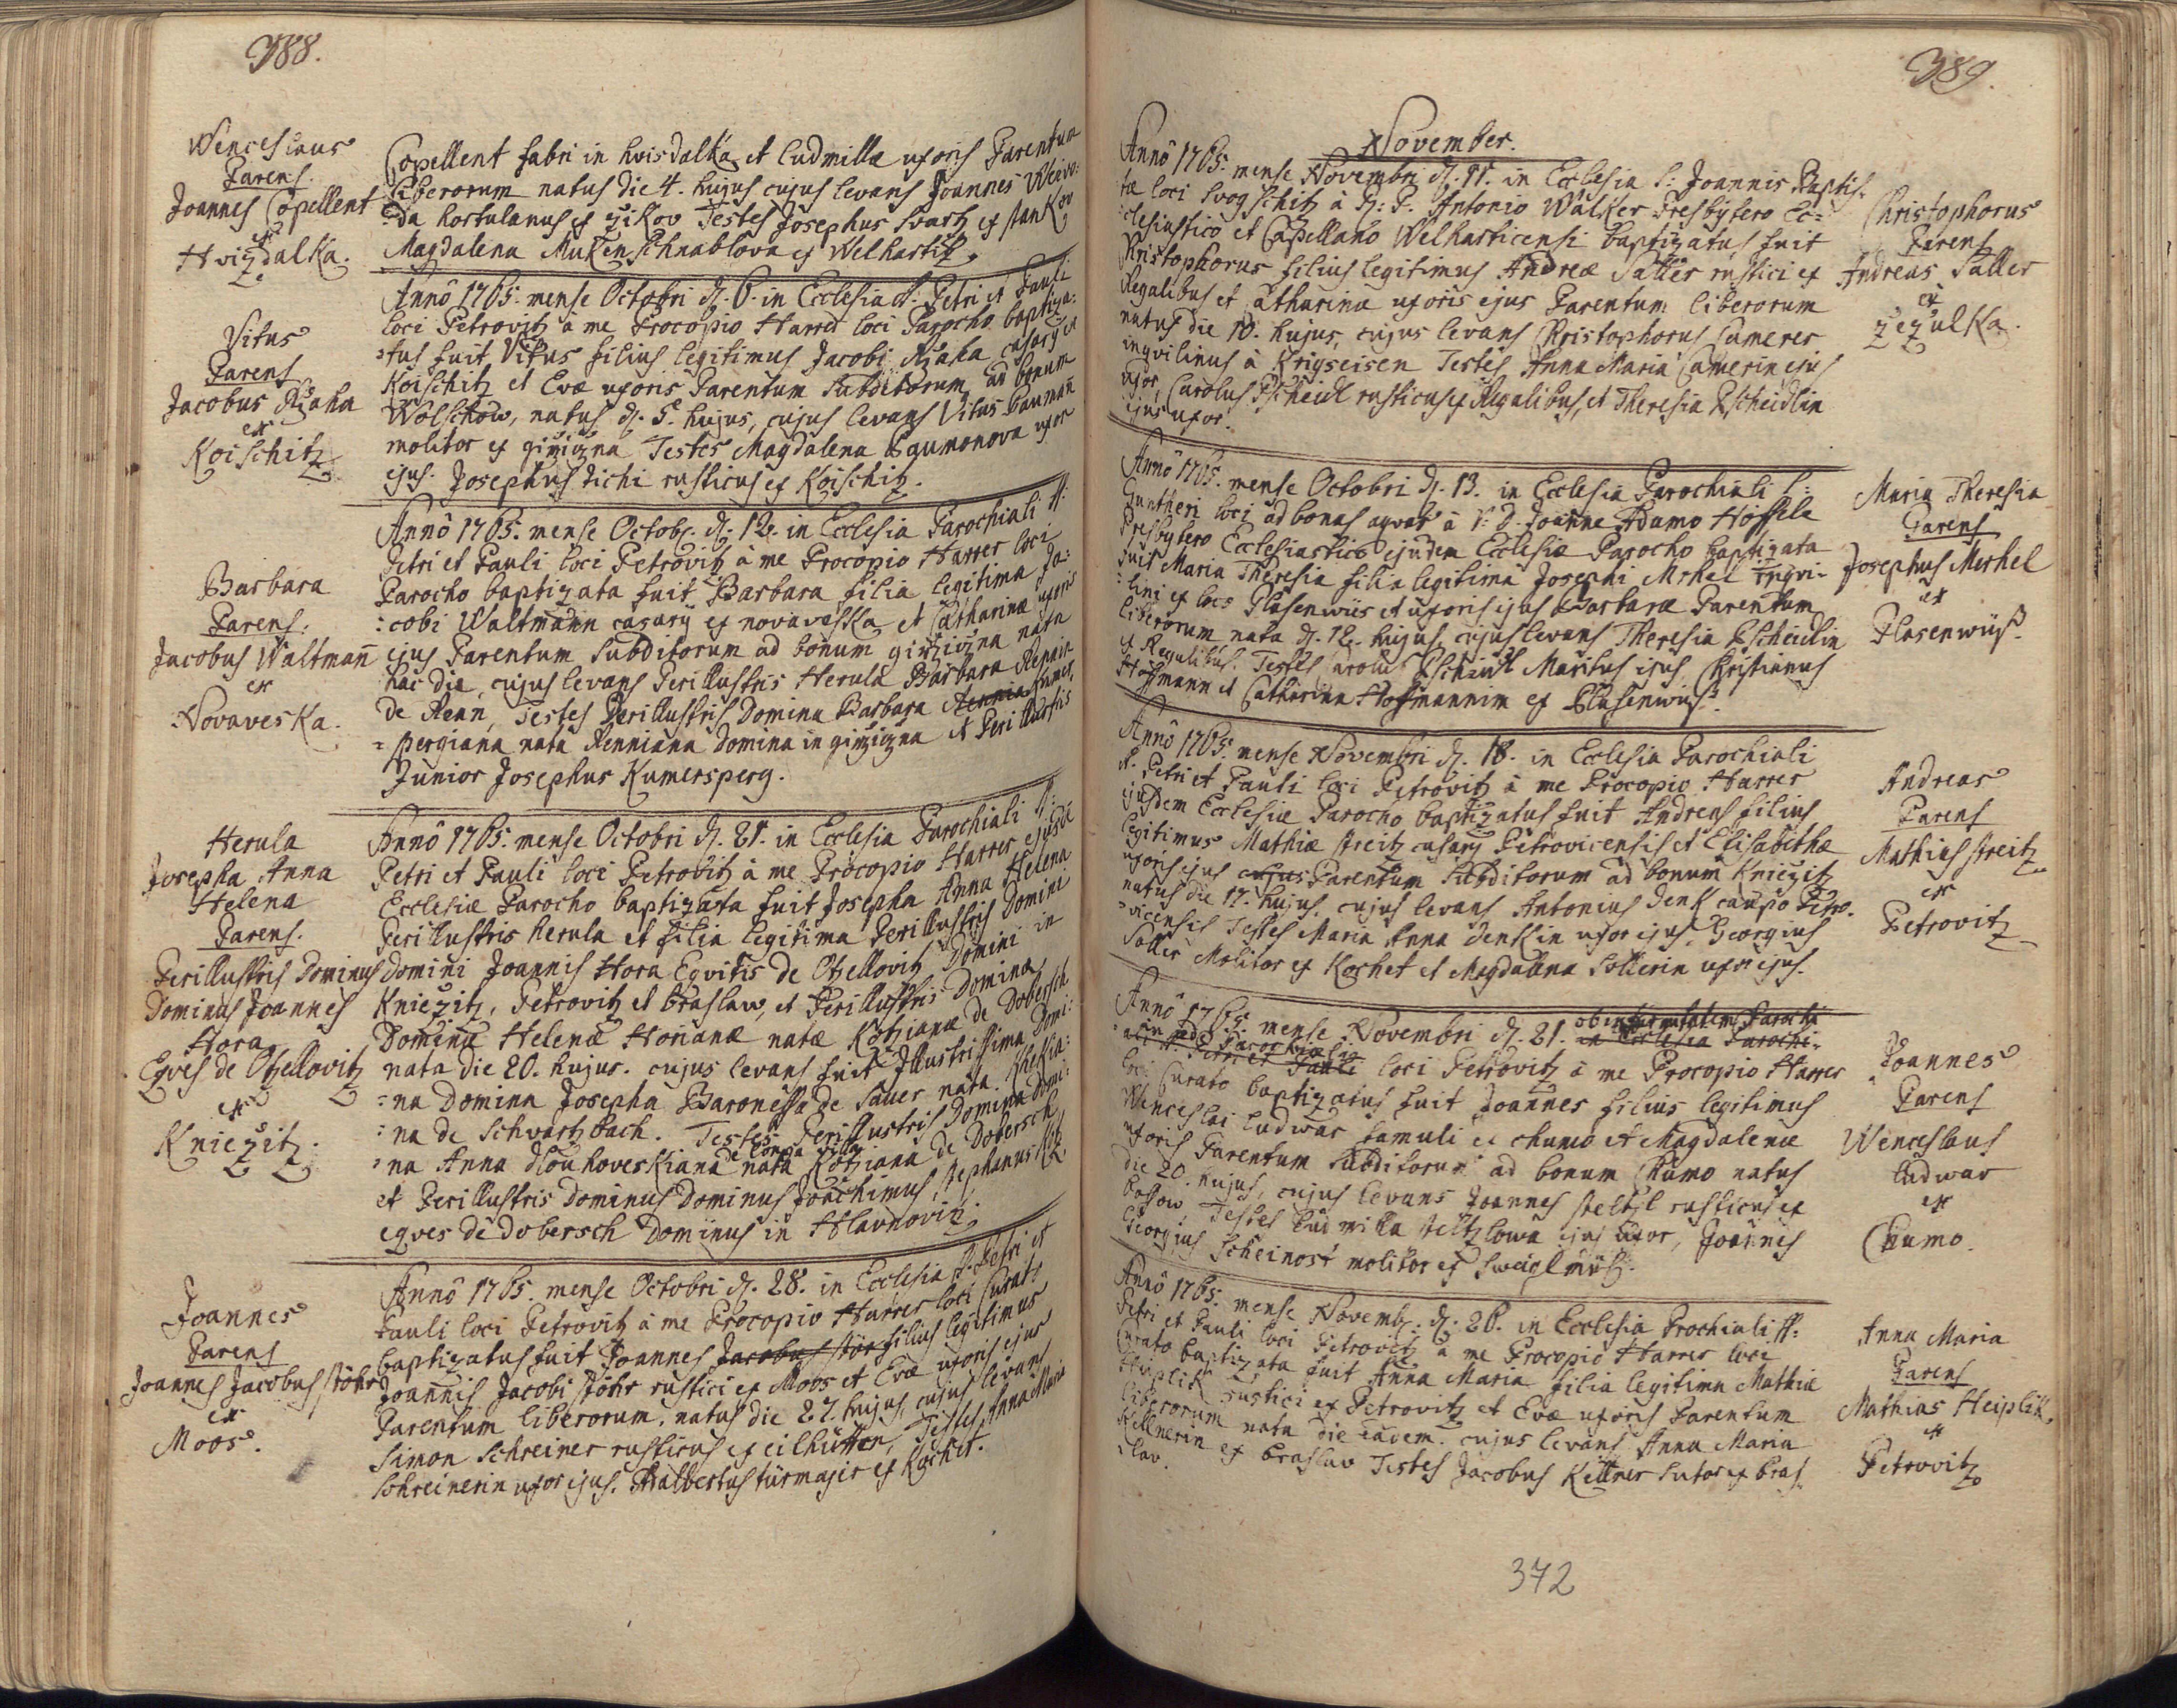 388.
Wenceslaus
Parens.
Joannes Copellent
ex
Hvizdalka.
Copellent fabri in hvisdalka et ludmillæ uxoris Parentum
liberorum natus die 4. hujus cujus levans Joannes
da hortulanus ex zikov Testes Josephus Svartz ex stankov
Magdalena Mukenschnablova ex Welhartitz.
Vitus
Parens
Jacobus Rzaha
ex
Koischitz
Annô 1765. mense Octobri d. 6. in Ecclesia SS. Petri et Pauli
loci Petrovitz à me Procopio Harrer loci Parocho baptiza=
=tus fuit Vitus filius legitimus Jacobi Rzaha casarÿ ex
Koischitz et Evæ uxoris Parentum Subditorum ad bonum
Wolschow, natus d. 5. hujus, cujus levans Vitus baumañ
molitor ex Testes Magdalena Paumonova uxor
ejus. Josephus tichi rusticus ex Koischitz.
Barbara
Parens.
Jacobus Waltmañ
ex
Novaveska.
Annô 1765. mense Octobr. d. 12. in Ecclesia Parochiali SS.
Petri et Pauli loci Petrovitz à me Procopio Harrer loci
Parocho baptizata fuit Barbara filia legitima Ja=
=cobi Waltmann casarÿ ex novaveska et Catharinæ uxoris
ejus Parentum Subditorum ad bonum nata
hac die, cujus levans Perillustris Herula Barbara
de Renn, Testes Perillustris Domina Barbara Kumer=
=pergiana nata Renniana Domina in et Perillustris
Junior Josephus Kumersperg.
Herula
Josepha Anna
Helena
Parens.
Perillustris Dominus
Dominus Joannes
Hora
Eqves de Otzellovitz
ex
Kniezitz.
Annô 1765. mense Octobri d. 21. in Ecclesia Parochiali SS.
Petri et Pauli loci Petrovitz à me Procopio Harrer ejusdē
Ecclesiæ Parocho baptizata fuit Josepha Anna Helena
Perillustris herula et filia legitima Perillustris Domini
Domini Joannis Hora Eqvitis de Otzellovitz Domini in
Kniezitz, Petrovitz et braslaw, et Perillustris Dominæ
Dominæ Helenæ Horianæ natæ Kotziana de Dobersch
nata die 20. hujus. cujus levans fuit Illustrissima Domi=
=na Domina Josepha Baronessa de Sauer nata
=na de Schwartzbach. Testes Perillustris Domina Domi=
=na Anna dlouhoveskiana de longa villa nata Kotziana de Dobersch
et Perillustris Dominus Dominus Joachimus, stephanus
eqves de dobersch Dominus in Hlavnovitz.
Joannes
Parens
Joannes Jacobus stöhr
ex
Moos.
Annô 1765. mense Octobri d. 28. in Ecclesia SS. Petri et
Pauli loci Petrovitz à me Procopio Harrer loci Curato
baptizatus fuit Joannes Jacobus stör filius legitimus
Joannis Jacobi stöhr rustici ex Moos et Evæ uxoris ejus
Parentum liberorum. natus die 27. hujus, cujus levans
Simon Schreiner rusticus ex eilhütten, Testes, Anna Maria
Schreinerin uxor ejus. Adalbertus türmajir ex Kochet.
389.
November.
Annô 1765. mense Novembri d. 11. in Ecclesia S: Joannis Baptis=
tæ loci Svogschitz à R: P. Antonio Walker Presbÿtero Ec=
clesiastico et Capellano Welharticensi baptizatus fuit
Kristophorus filius legitimus Andreæ Saller rustici ex
Regalibus et Catharinæ uxoris ejus Parentum liberorum
natus die 10. hujus, cujus levans Kristophorus Camerer
inqvilinus à Krigseisen Testes Anna Maria Camerin ejus
uxor, Carolus Pscheidl rusticus ex Regalibus, et Theresia Pscheidlin
ejus uxor.
Christophorus
Parens
Andreas Saller
ex
zezulka.
Annô 1765. mense Octobri d. 13. in Ecclesia Parochiali S:
Guntheri loci ad bonas aqvas à V. D. Joanne Adamo Höffele
Presbÿtero Ecclesiastico ejusdem Ecclesiæ Parocho baptizata
fuit Maria Theresia filia legitima Josephi Mrkel inqvi=
=lini ex loco Plasenwüs et uxoris ejus Barbaræ Parentum
liberorum nata d. 12. hujus, cujus levans Theresia Pscheidlin
ex Regalibus. Testes Pscheidl Maritus ejus, Kristianus
Hoffmann et Catharina Hoffmannin ex Plasenwüs.
Maria Theresia
Parens
Josephus Merkel
ex
Plasenwüß.
Annô 1765. mense Novembri d. 18. in Ecclesia Parochiali
SS. Petri et Pauli loci Petrovitz à me Procopio Harrer
ejusdem Ecclesiæ Parocho baptizatus fuit Andreas filius
legitimus Mathiæ streitz casarÿ Petrovicensis et Elisabethæ
uxoris ejus cujus Parentum Subditorum ad bonum Kniezitz
natus die 17. hujus. cujus levans Antonius denk caupo Petro=
=vicensis Testes Maria Anna denkin uxor ejus, Georgius
Soller Molitor ex Kochet et Magdalena Sollerin uxor ejus.
Andreas
Parens
Mathias streitz
ex
Petrovitz
Annô 1765. mense Novembri d. 21. in Ecclesia Parochi=
ali SS. Petri et Pauli loci Petrovitz à me Procopio Harrer
loci Curato baptizatus fuit Joannes filius legitimus
Wenceslai ludwar famuli ex chumo et Magdalenæ
uxoris Parentum Subditorum ad bonum Chumo natus
die 20. hujus, cujus levans Joannes steltzl rusticus ex
Testes ludmilla steltzlowa ejus uxor, Joannes
Georgius Scheinost molitor ex
Joannes
Parens
Wenceslaus
ludwar
ex
Chumo.
Annô 1765. mense Novemb. d. 26. in Ecclesia Prochiali SS.
Petri et Pauli loci Petrovitz à me Procopio Harrer loci
Curato baptizata fuit Anna Maria filia legitima Mathiæ
Heiplik rustici ex Petrovitz et Evæ uxoris Parentum
liberorum nata die eadem. cujus levans Anna Maria
Kellnerin ex braslav Testes Jacobus Kellner sutor ex bras=
=lav.
Anna Maria
Parens
Mathias Heiplik.
ex
Petrovitz
372